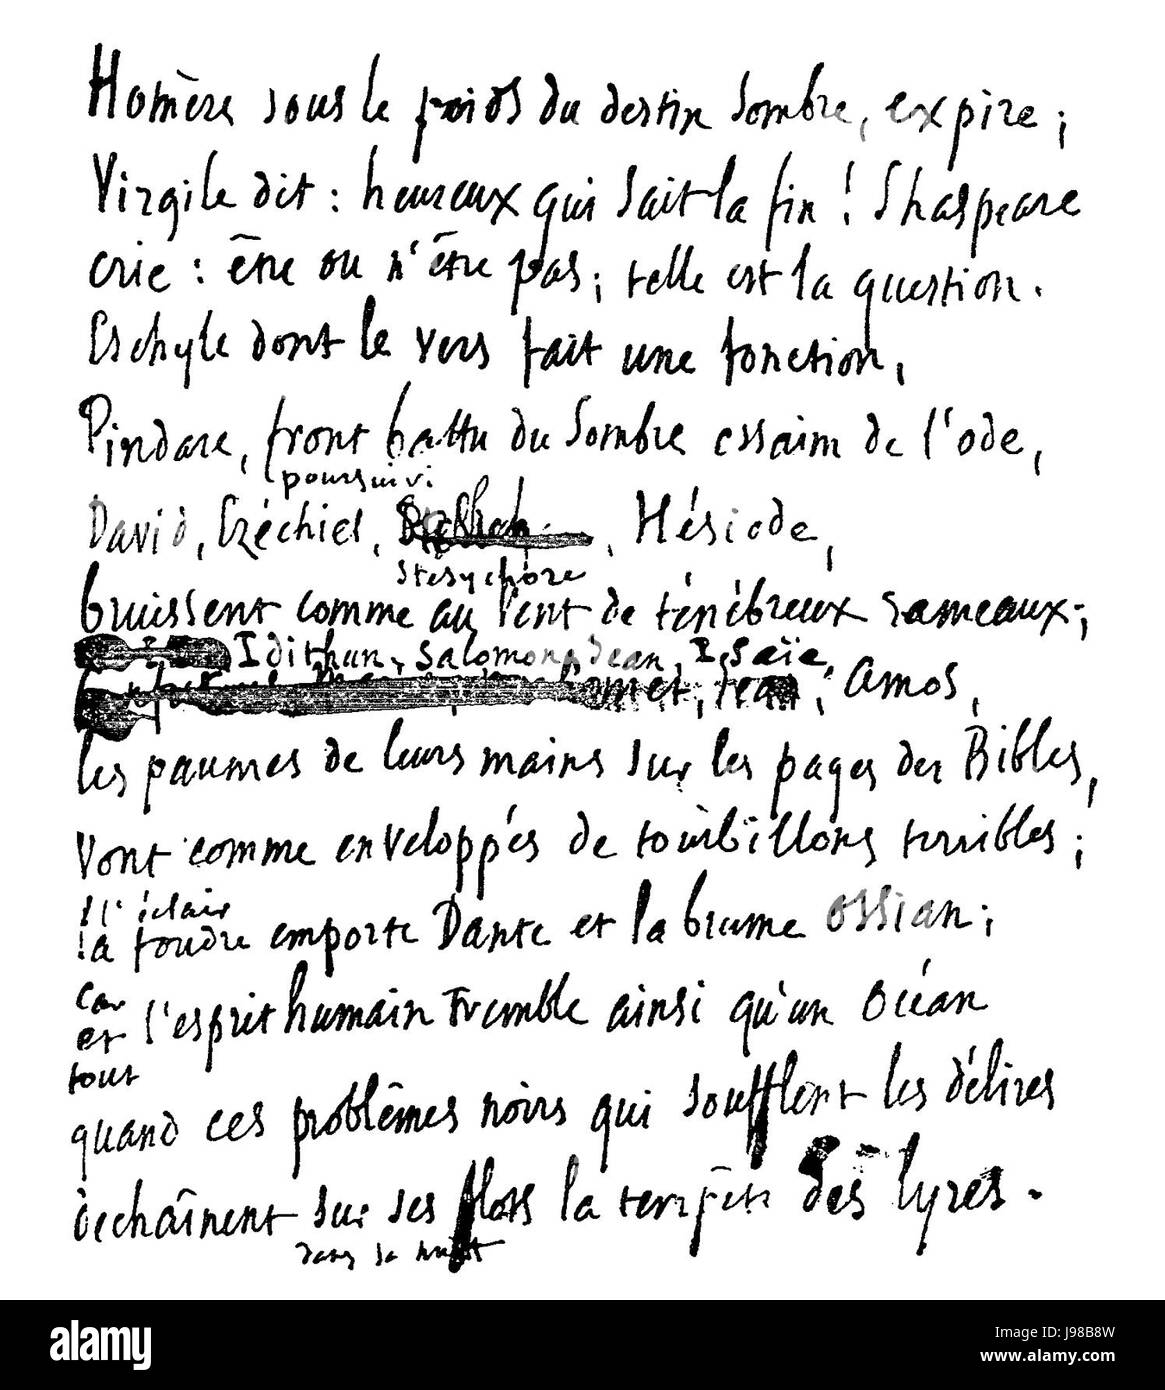 Homère sous le poids du destin sombre, expire;
Virgile dit: heureux qui sait la fin! Shaspeare
crie: être ou n'être pas; telle est la question.
Eschyle dont le vers fait une fonction,
Pindare, front battu du sombre essaim de l'ode,
poursuivi
David, Ezéchiel, , Hésiode,
Stesychore
bruissent comme au vent de ténébreux rameaux;
Idithun, Salomon, Jean, Isaïe,
, Jean, Amos,
les paumes de leurs mains sur les pages des Bibles,
Vont comme enveloppés de tourbillons terribles;
l'éclair
la foudre emporte Dante et la brume Ossian;
car
et l'esprit humain tremble ainsi qu'un Océan
tout
quand ces problêmes noirs qui soufflent les délires
dechaînent sur ses flots la tempête des lyres.
dans sa nuit
alamy
Image ID: J98B8W
www.alamy.com